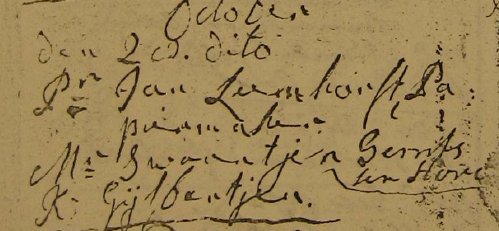 October
den 2 d. dito
Pr Jan Leemhorst, Pa
piermaker
Mr Swaantjen Gerrits
K: Gijlbertjen.